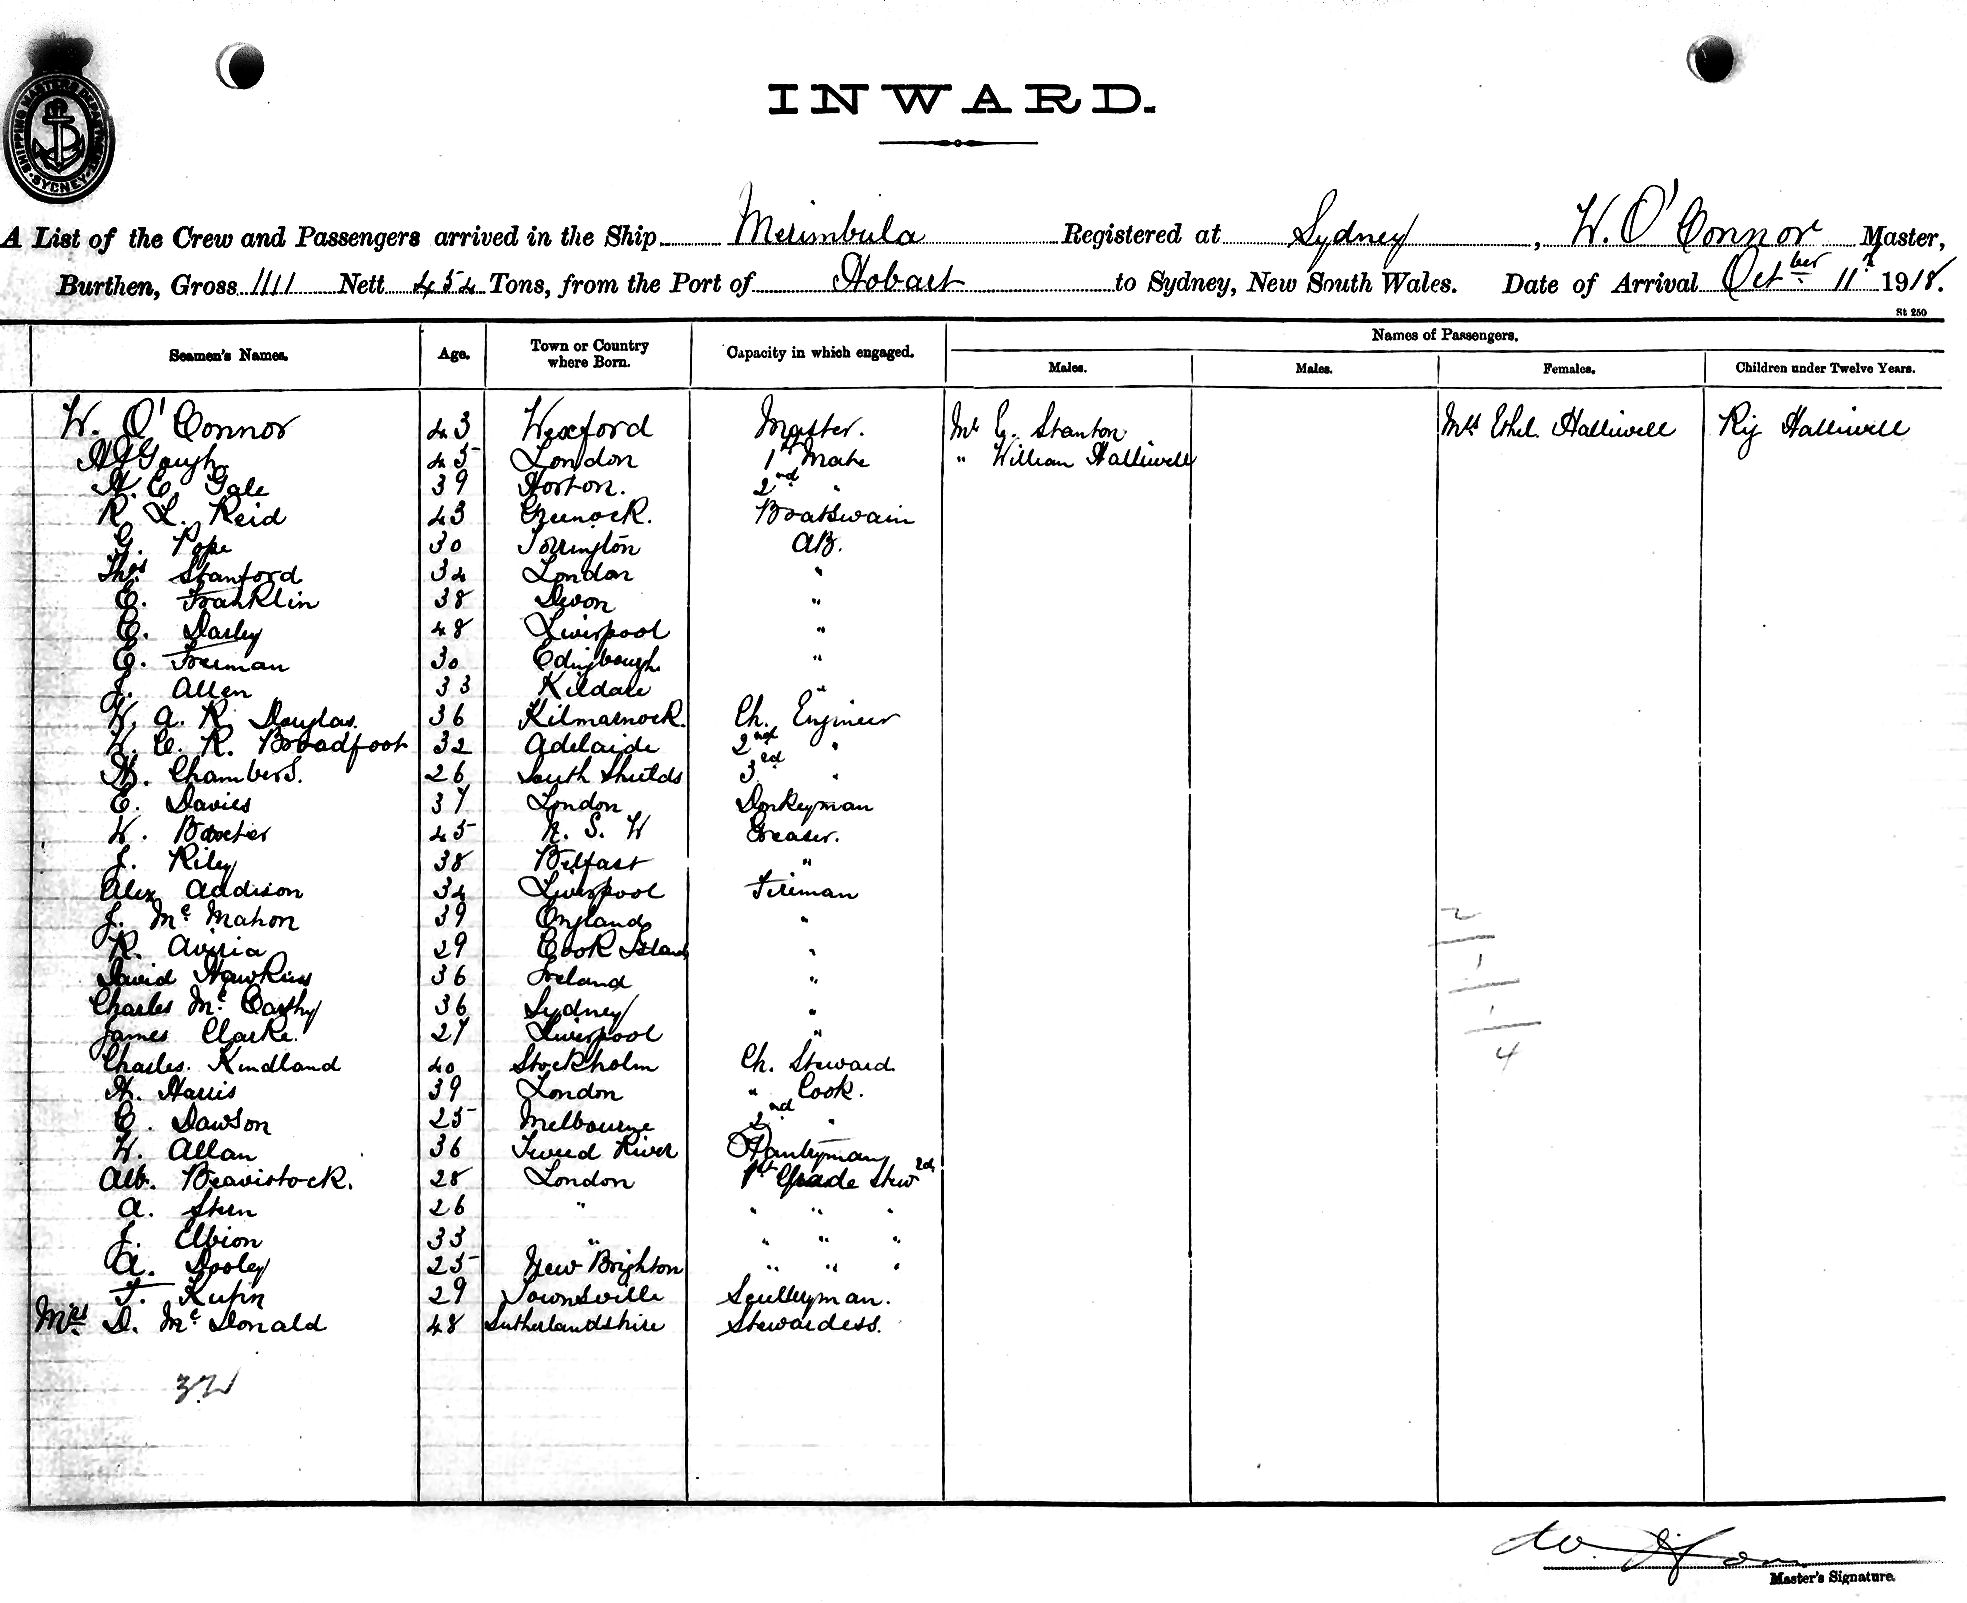 SHIPPING MASTERS DEPARTMENT
SYDNEY
INWARD.
A List of the Crew and Passengers arrived in the Ship Merimbula Registered at Sydney, W. O'Connor Master,
Burthen, Gross 1111 Nett 454 Tons, from the Port of Hobart to Sydney, New South Wales. Date of Arrival Octber 11th 1918.
St 250
Names of Passengers.
Seamen's Names. Age. Town or Country where Born. Capacity in which engaged. Males. Males. Females. Children under Twelve Years.
W. O'Connor 43 Wexford Master. Mr G. Stanton Mrs Ethel. Halliwell Rij Halliwell
Gough 45 London 1st Mate " William Halliwell
H. E. Gale 39 Horton. 2nd "
R L. Reid 43 Greenock. Boatswain
G. Pope 30 Torrington AB.
Thos Stanford 34 London "
E. Franklin 38 Devon "
E. Darley 48 Liverpool "
E. Freeman 30 Edinbough "
J. Allen 33 Kildare "
W. A. R. Douglas. 36 Kilmarnock. Ch. Engineer
W. C. R. Broadfoot 32 Adelaide 2nd "
H. Chambers. 26 South Shields 3rd "
E. Davies 37 London Donkeyman
W. Baxter 45 N. S. W Greaser.
J. Riley 38 Belfast "
Alex Addison 34 Liverpool Fireman
J. Mc Mahon 39 England "
R. Aviria 29 Cook Island "
David Hawkins 36 Ireland "
Charles Mc Carthy 36 Sydney "
James Clarke. 27 Liverpool "
Charles. Kindland 40 Stockholm Ch. Steward.
H. Harris 39 London " Cook.
E. Dawson 25 Melbourne 2nd "
W. Allan 36 Tweed River Pantryman
Alb. Beavistock. 28 London 1st Grade Stewd
A. Stern 26 " " " "
J. Albion 33 " " " "
A. Dooley 25 New Brighton " " "
F. Kupin 29 Townsville Sculleryman.
Mrs D. McDonald 48 Sutherlandshire Stewardess.
32
2
1
1
4
Master's Signature.